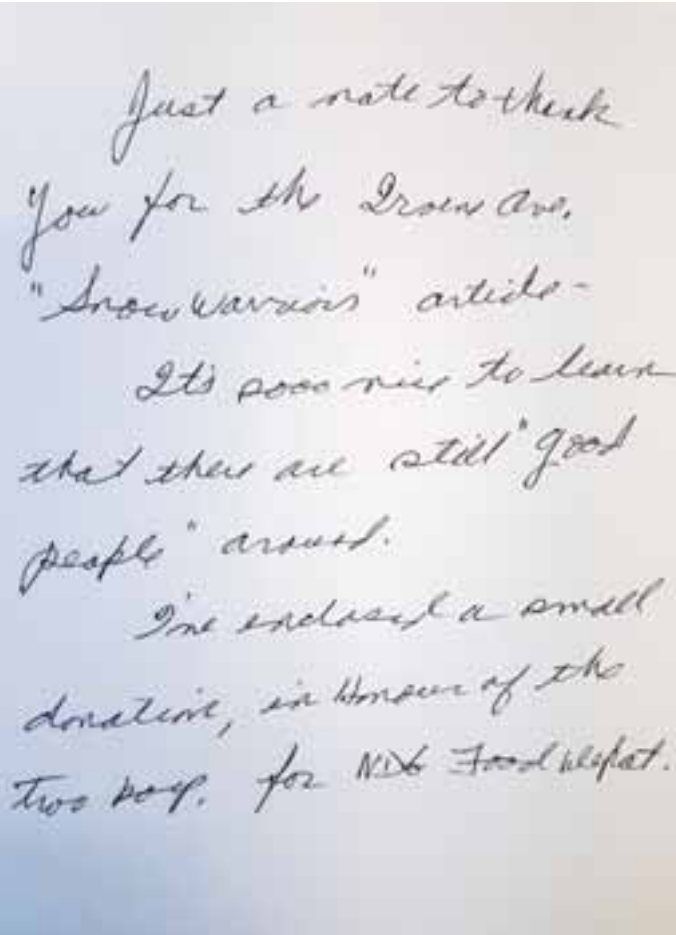 Just a note to thank
You for the Ave.
"Snow Warriors" article -
It's sooo nice to learn
that there are still "good
people" around.
I've enclosed a small
donation, in Honour of the
two boys. for Food Depot.